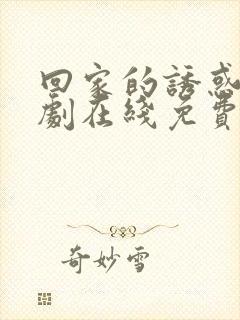 回家的誘惑
劇在綫免費
奇妙雪